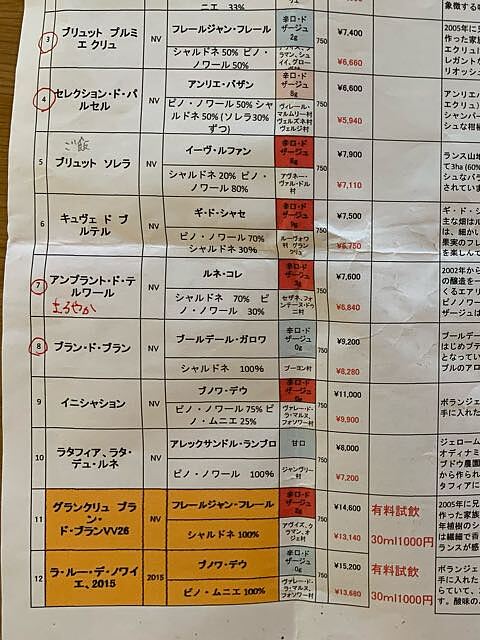 ニエ 33%
3
ブリュット プルミ
エ クリュ
NV
フレールジャン・フレール
シャルドネ 50% ピノ・
ノワール 50%
辛口・ド
ザージュ
2g
750
¥7,400
¥6,660
2005年に兄
作った家族
エクリュは
レガントな
リオッシュ
4
セレクション・ド・パ
ルセル
NV
アンリエ・バザン
ピノ・ノワール 50% シャ
ルドネ 50% (ソレラ30%
ずつ)
辛口・ド
ザージュ
8g
ヴィレール・
マルムリー村
ヴェルズネ村
ヴェルジ村
750
¥6,600
¥5,940
アンリエ・バ
エクリュ)
シャンパー
シュな柑橘
ご飯
5
ブリュット ソレラ
NV
イーヴ・ルファン
シャルドネ 20% ピノ・
ノワール 80%
辛口・ド
ザージュ
アヴネー・
ヴァル・ドル
村
750
¥7,900
¥7,110
ランス山地
て3ha (60%
シュなバラ
されていま
6
キュヴェ ド ブ
ルテル
NV
ギ・ド・シャセ
ピノ・ノワール 70%
シャルドネ 30%
辛口・ド
ザージュ
ルーヴォワ
村 グラン
クリュ
750
¥7,500
¥6,750
ギ・ド・シ
主な畑はル
は、細かい
果実のフレ
を楽しんで
7
アンプラント・ド・テ
ルワール
まろやか
NV
ルネ・コレ
シャルドネ 70% ピ
ノ・ノワール 30%
辛口・ド
ザージュ
セザネ、フォ
ンテーヌ・ドゥ
ニ村
750
¥7,600
¥6,840
2002年から
の醸造を一
くるエアリ
ピノノワー
ザージュは
8
ブラン・ド・ブラン
NV
プールデール・ガロワ
シャルドネ 100%
辛口・ド
ザージュ
0g
プーヨン村
750
¥9,200
¥8,280
プールデー
はじめブテ
となってい
ブルのアロ
9
イニシャション
NV
ブノワ・デウ
ピノ・ノワール 75% ピ
ノ・ムニエ 25%
辛口・ド
ザージュ
ヴァレー・ド・
ラ・マルヌ、
フォソワー村
750
¥11,000
¥9,900
ボランジェ
手に入れた
10
ラタフィア、ラタ・
デュ・ルネ
NV
アレックサンドル・ランブロ
ピノ・ノワール 100%
甘口
ジャンヴリー
村
750
¥8,000
¥7,200
ジェローム
オディナミ
ブドウ農園
から作られ
タフィアに
11
グランクリュ ブラ
ン・
ド・ブランVV26
NV
フレールジャン・フレール
シャルドネ 100%
辛口・ド
ザージュ
2g
アヴィズ、ク
ラマン、オ
ジェ村
750
¥14,600
¥13,140
有料試飲
30ml1000円
2005年に兄
作った家族
年植樹のシ
は繊細で香
ランスが感
12
ラ・ルー・デ・ノワイ
エ、2015
2015
ブノワ・デウ
ピノ・ムニエ 100%
辛口・ド
ザージュ
0g
ヴァレー・ド・
ラ・マルヌ、
フォソワー村
750
¥15,200
¥13,680
有料試飲
30ml1000円
ボランジェ
手に入れた
らていて、
す。酸味の